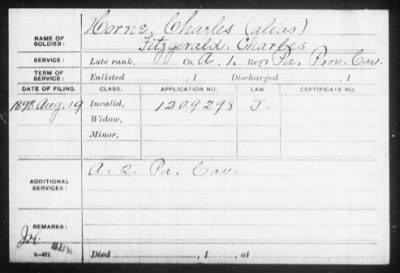 NAME OF SOLDIER: Horne, Charles (alias)
Fitzgerald, Charles
SERVICE: Late rank, Co. A, 1, Reg't Pa. Prov. Cav.
TERM OF SERVICE: Enlisted , 1 Discharged , 1
DATE OF FILING. CLASS. APPLICATION NO. LAW. CERTIFICATE NO.
1898 Aug. 19 Invalid, 1209298 J.
Widow,
Minor,
ADDITIONAL SERVICES: A. 2. Pa. Cav.
REMARKS:
Died , 1 , at